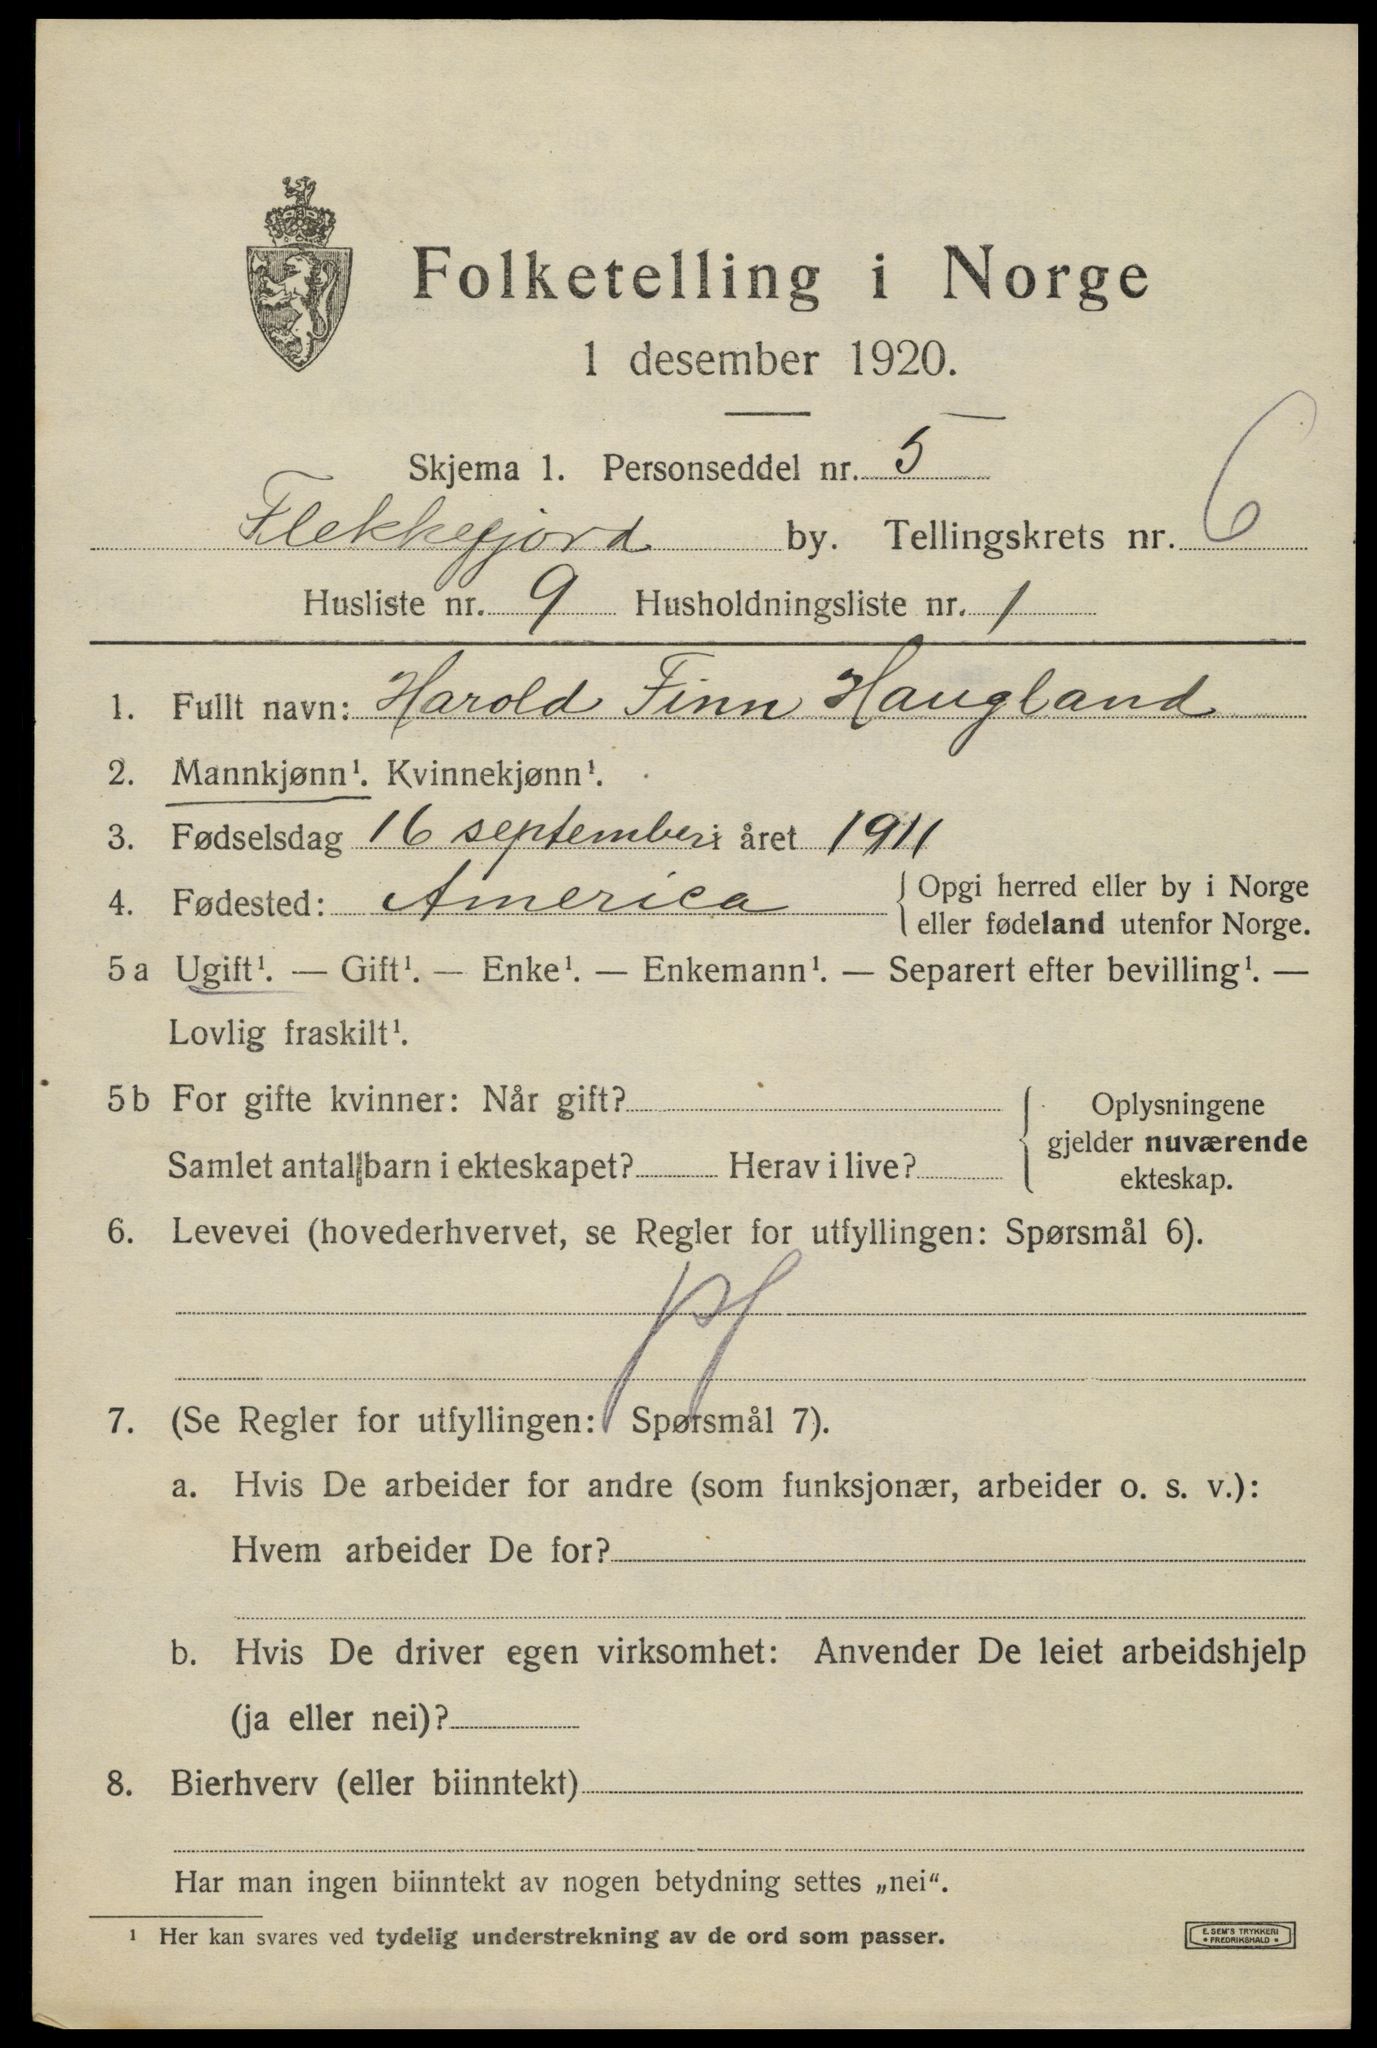 Folketelling i Norge
1 desember 1920.
Skjema 1. Personseddel nr. 5
Flekkefjord by. Tellingskrets nr. 6
Husliste nr. 9 Husholdningsliste nr. 1
1. Fullt navn: Harold Finn Haugland
2. Mannkjønn¹. Kvinnekjønn¹.
3. Fødselsdag 16 september i året 1911
4. Fødested: America { Opgi herred eller by i Norge
eller fødeland utenfor Norge.
5 a Ugift¹. — Gift¹. — Enke¹. — Enkemann¹. — Separert efter bevilling¹. —
Lovlig fraskilt¹.
5 b For gifte kvinner: Når gift?
Samlet antall barn i ekteskapet? Herav i live?
{ Oplysningene
gjelder nuværende
ekteskap.
6. Levevei (hovederhvervet, se Regler for utfyllingen: Spørsmål 6).
7. (Se Regler for utfyllingen: Spørsmål 7).
a. Hvis De arbeider for andre (som funksjonær, arbeider o. s. v.):
Hvem arbeider De for?
b. Hvis De driver egen virksomhet: Anvender De leiet arbeidshjelp
(ja eller nei)?
8. Bierhverv (eller biinntekt)
Har man ingen biinntekt av nogen betydning settes „nei“.
¹ Her kan svares ved tydelig understrekning av de ord som passer.
E. SEM'S TRYKKERI
* FREDRIKSHALD *